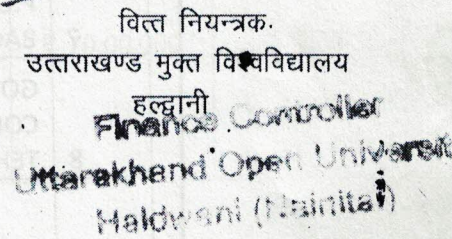 वित्त नियन्त्रक.
उत्तराखण्ड मुक्त विश्वविद्यालय
हल्द्वानी
Finance Controller
Uttarakhand Open Universit
Haldwani (Nainital)